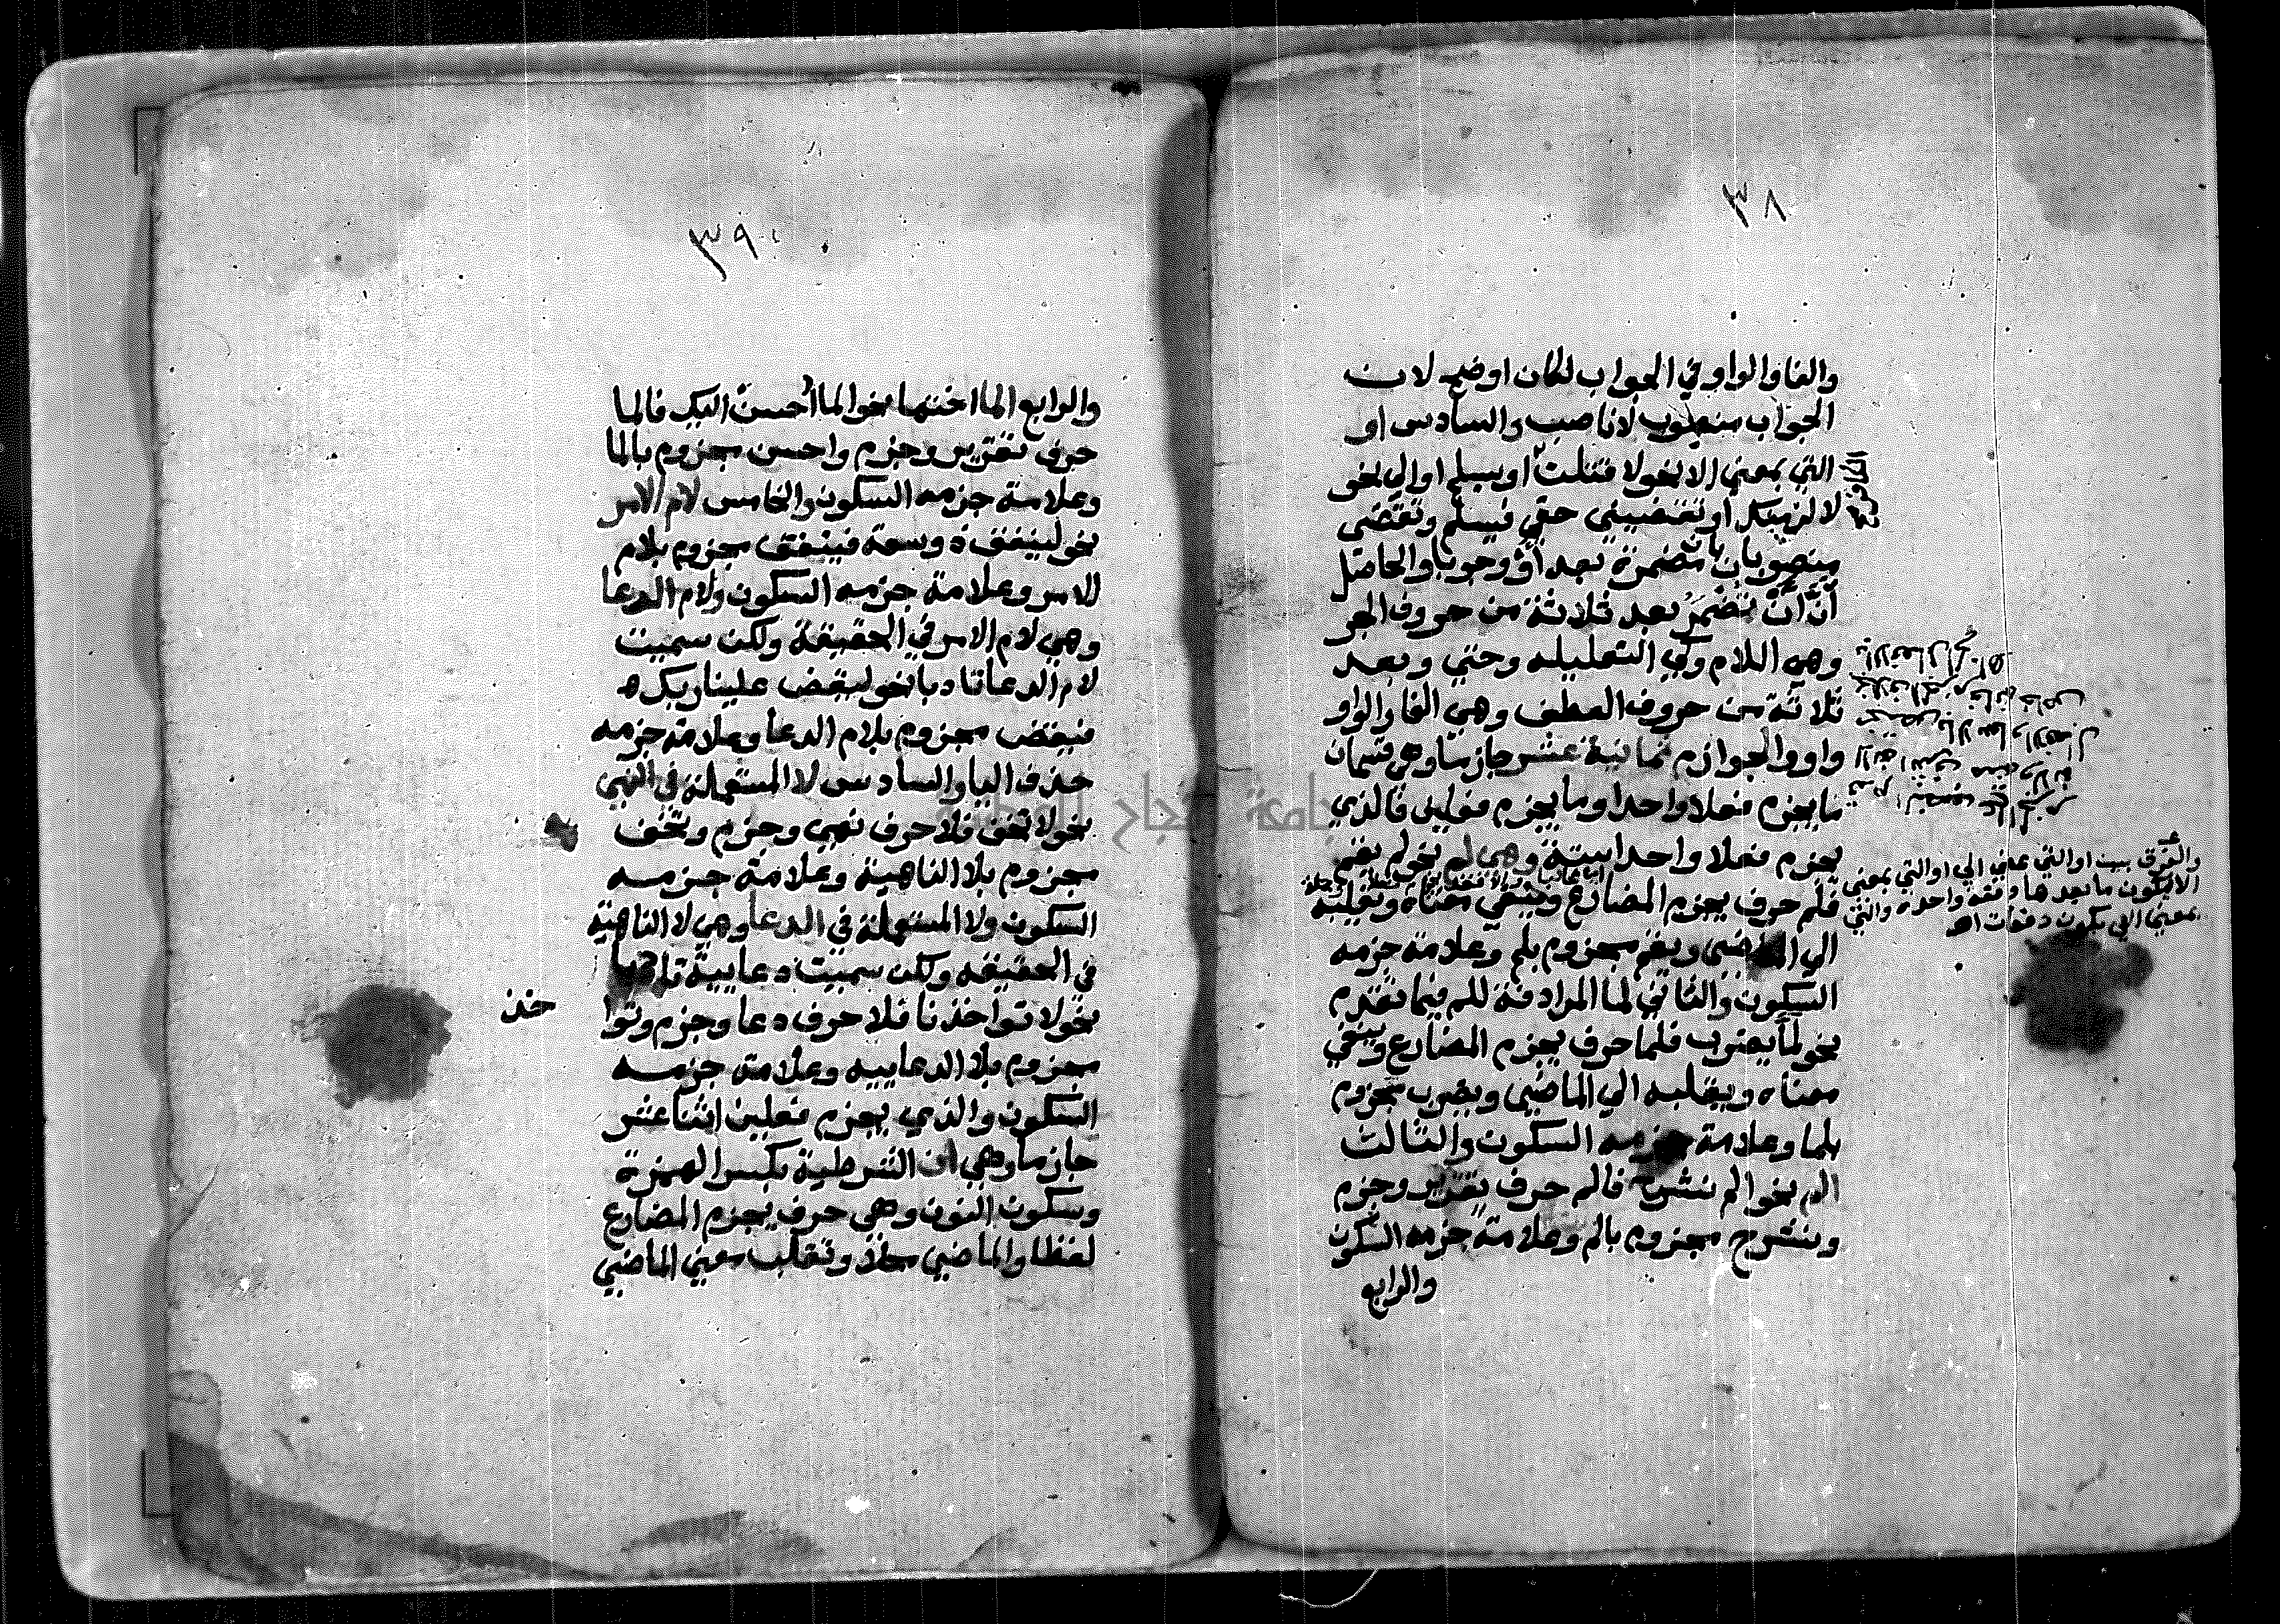 ٣٨
والفا والواو في الجواب لكان اوضح لان
الجواب منصوب لا ناصب والسادس او
التي بمعني الا نحو لا قتلت او يسلم او الي نحو
لا لزمنك او تقضيني حقي فيسلم وتقضي
منصوبان بان مضمرة بعد او وجوبا والحاصل
أنَّ أنْ تضمر بعد ثلاثة من حروف الجر
وهي اللام وكي التعليليه وحتي وبعد
ثلاثة من حروف العطف وهي الفا والواو
واو والجوازم ثمانية عشر جازما وهي قسمان
ما يجزم فعلا واحدا وما يجزم فعلين فالذي
يجزم فعلا واحدا ستة وهي لم نحو لم يقم
فلم حرف يجزم المضارع وينفي معناه ويقلبه
الي الماضي ويقم مجزوم بلم وعلامة جزمه
السكون والثاني لما المرادفة للم فيما تقدم
نحو لما يضرب فلما حرف يجزم المضارع وينفي
معناه ويقلبه الي الماضي ويضرب مجزوم
بلما وعلامة جزمه السكون والثالث
الم نحو الم نشرح فالم حرف تقرير وجزم
ونشرح مجزوم بالم وعلامة جزمه السكون
والرابع
والفرق بين او التي بمعني الي او التي بمعني
الا يكون ما بعدها دفعه واحده والتي
بمعني الي يكون دفعات اهـ
٣٩
والرابع الما اختها نحو الما أحسن اليك فالما
حرف تقرير وجزم واحسن مجزوم بالما
وعلامة جزمه السكون والخامس لام الامر
نحو لينفق ذو سعة فينفق مجزوم بلام
الامر وعلامة جزمه السكون ولام الدعا
وهي لام الامر في الحقيقة ولكن سميت
لام الدعا تادبا نحو ليقض علينا ربك هـ
فيقض مجزوم بلام الدعا وعلامة جزمه
حذف اليا والسادس لا المستعملة في النهي
نحو لا تخف فلا حرف نهي وجزم وتخف
مجزوم بلا الناهية وعلامة جزمه
السكون ولا المستعملة في الدعا وهي لا الناهية
في الحقيقه ولكن سميت دعاييية تادبا
نحو لا تواخذنا فلا حرف دعا وجزم وتوا
خذ
مجزوم بلا الدعاييه وعلامة جزمه
السكون والذي يجزم فعلين اثنا عشر
جازما وهي ان الشرطية بكسر الهمزة
وسكون النون وهي حرف يجزم المضارع
لفظا والماضي محلا وتقلب معني الماضي